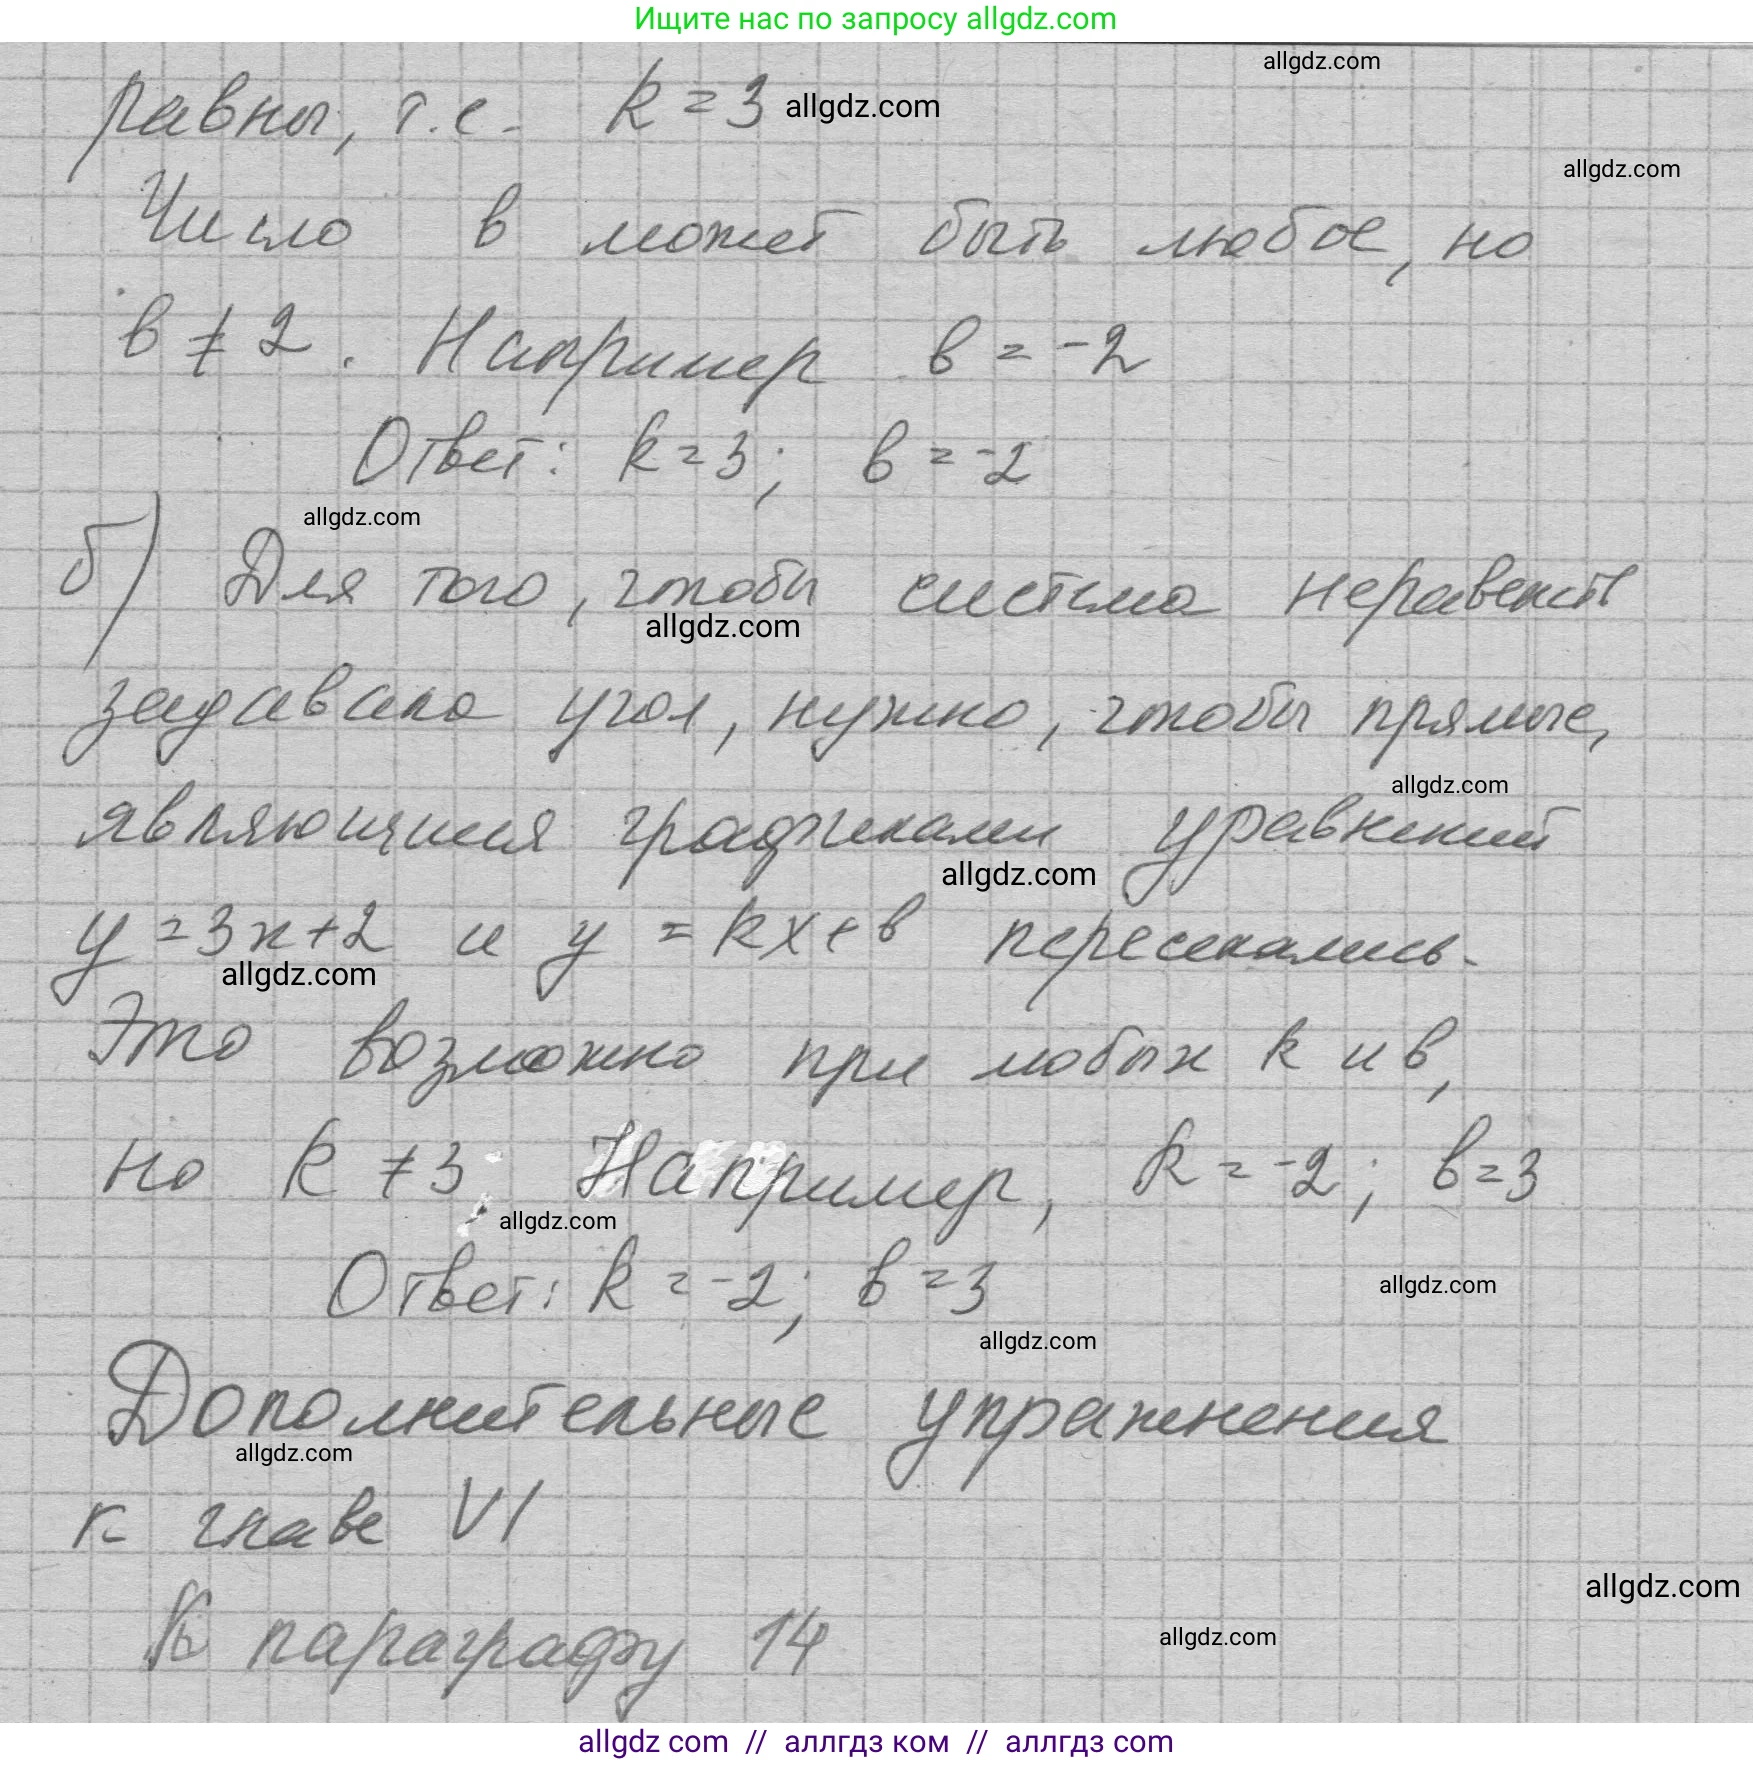 Ищите нас по запросу allgdz.com
allgdz.com
равны, т.е. k = 3 allgdz.com
allgdz.com
Число в может быть любое, но
в ≠ 2. Например в = -2
Ответ: k = 3; в = -2
allgdz.com
б) Для того, чтобы система неравенств
allgdz.com
задавала угол, нужно, чтобы прямые,
allgdz.com
являющиеся графиками уравнений
allgdz.com
у = 3х + 2 и у = kх + в пересекались.
allgdz.com
Это возможно при любых k и в,
но k ≠ 3. Например, k = -2; в = 3
allgdz.com
Ответ: k = -2; в = 3
allgdz.com
allgdz.com
Дополнительные упражнения
allgdz.com
к главе VI
allgdz.com
К параграфу 14
allgdz.com
allgdz com // аллгдз ком // аллгдз com